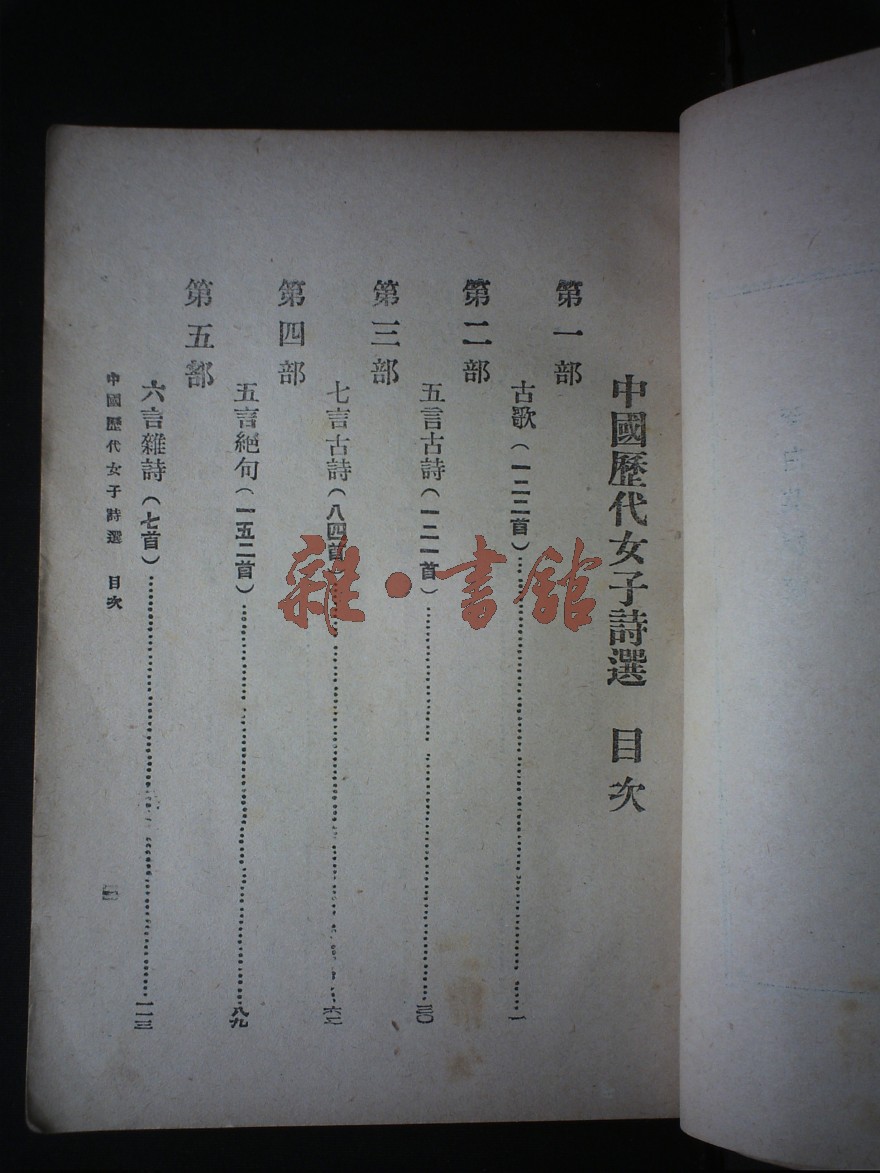 中國歷代女子詩選 目次
第一部
古歌(一二二首)……一
第二部
五言古詩(一二一首)……三〇
第三部
七言古詩(八四首)……六七
第四部
五言絕句(一五二首)……八九
第五部
六言雜詩(七首)……一一三
中國歷代女子詩選 目次
雜·書館